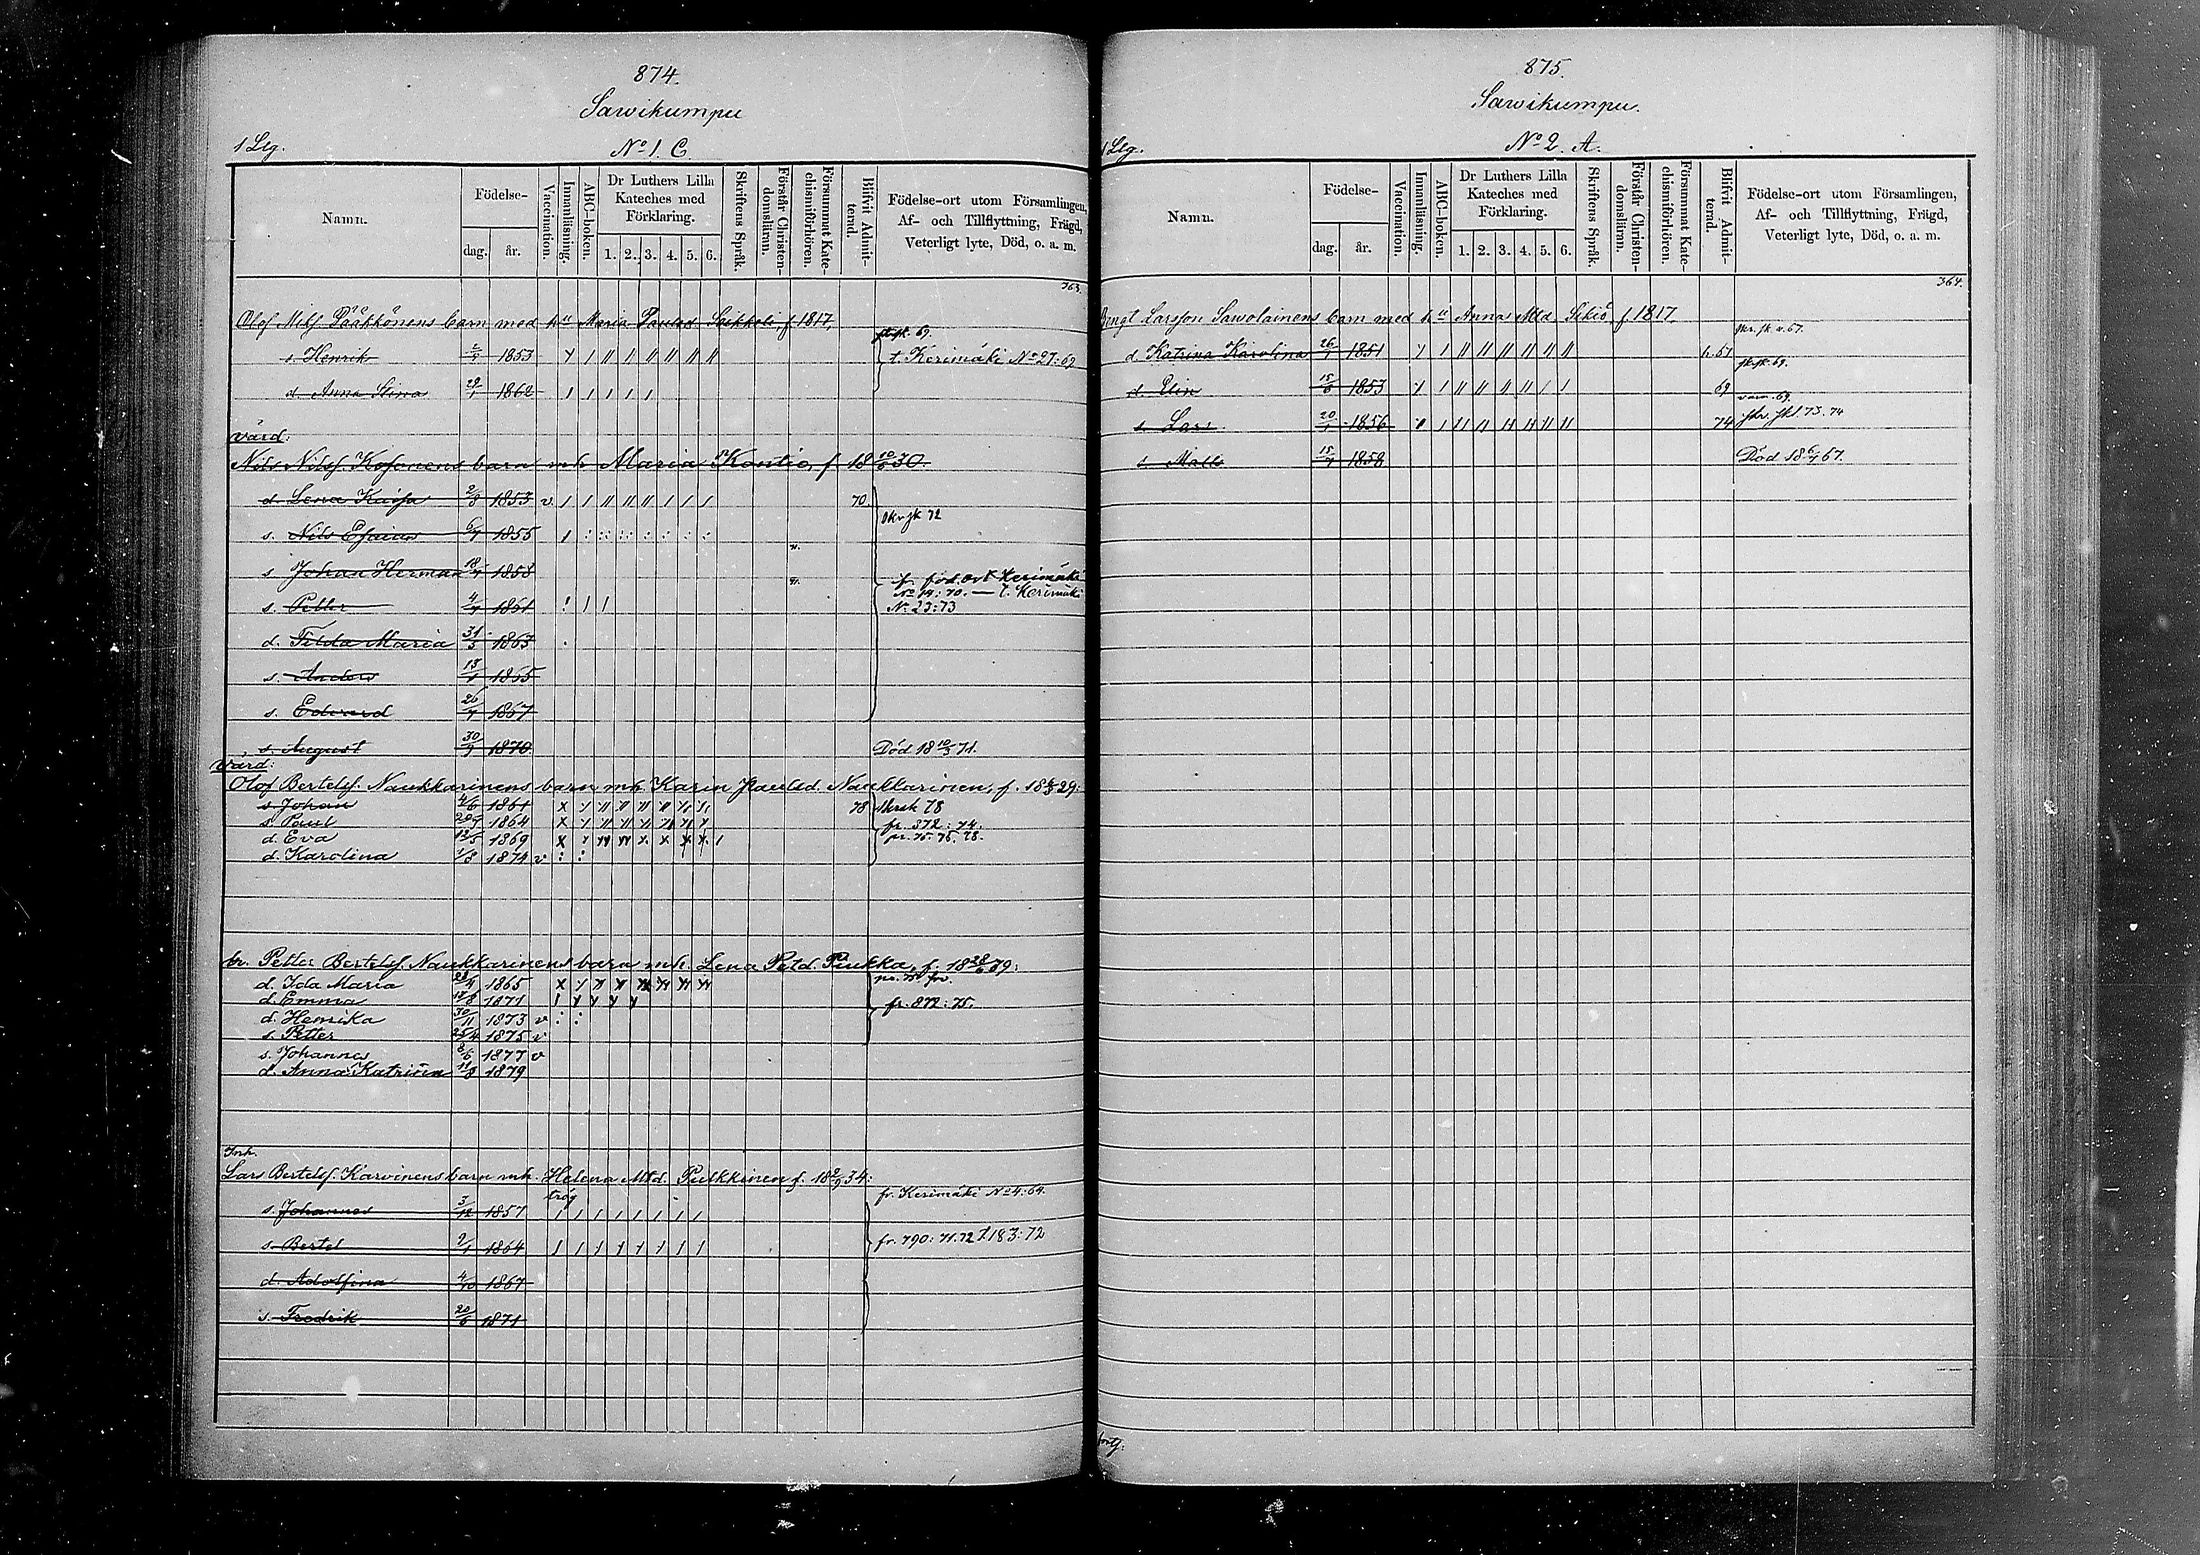 874.
Sawikumpu
1 Llg.
No 1. C.
Namn.
Födelse-
dag.
år.
Vaccination.
Innanläsning.
ABC-boken.
Dr Luthers Lilla
Kateches med
Förklaring.
1. 2. 3. 4. 5. 6.
Skriftens Språk.
Förstår Christen-
domslärnn.
Försummat Kate-
chismiförhören.
Blifvit Admit-
terad.
Födelse-ort utom Församlingen,
Af- och Tillflyttning, Frägd,
Veterligt lyte, Död, o. a. m.
363.
Olof Nilss. Pääkkönens barn med hu Maria Paulsd Saikkoli, f 1817,
s. Henrik 1853 t. Kerimäki No 27:69
d. Anna Stina 29/1 1862
värd:
Nils Nilss. Kosonens barn mh Maria Kontio, f 18 30.
d. Lena Kaisa 2/3 1853 v. 70.
skr. sk 72
s. Nils Esaias 1855
s. Johan Herman 1858 fr. föd. ort Kerimäki
No 14:70. — t. Kerimäki
s. Petter 1861 No 23:73
d. Tilda Maria 31/3 1863
s. Anders 1865
s. Edvard 1867
s. August 1870 Död 18 10/3 71.
Värd:
Olof Bertelss. Naukkarinens barn mh. Karin Paulsd. Naukkarinen, f. 18 29:
s. Johan 1861 78 skrsk 78
s. Paul 1864 fr. 372:74.
d. Eva 12/5 1869 pr. 75. 76. 78.
d. Karolina 1/8 1874 v
br. Petter Bertelss. Naukkarinens barn mh. Lena Petd. Puukka, f. 18 39:
d. Ida Maria 1865
d. Emma 1871 fr. 872:75.
d. Henrika 30/11 1873 v
s. Petter 25/4 1875 v
s. Johannes 8/6 1877 v
d. Anna Katrina 11/8 1879
Inh.
Lars Bertelss. Karvinens barn mh. Helena Mtd. Pulkkinen f. 18 2/9 34:
trög
fr. Kerimäki No 4:64.
s. Johannes 3/12 1857
s. Bertel 2/1 1864 fr. 790:71.72 t 183:72
d. Adolfina 4/10 1867
s. Fredrik 20/6 1871
875.
Sawikumpu.
Llg.
No 2. A.
Namn.
Födelse-
dag.
år.
Vaccination.
Innanläsning.
ABC-boken.
Dr Luthers Lilla
Kateches med
Förklaring.
1. 2. 3. 4. 5. 6.
Skriftens Språk.
Förstår Christen-
domslärnn.
Försummat Kate-
chismiförhören.
Blifvit Admit-
terad.
Födelse-ort utom Församlingen,
Af- och Tillflyttning, Frägd,
Veterligt lyte, Död, o. a. m.
364.
Bengt Larsson Sawolainens barn med hu Anna Mtd Sikiö f 1817,
d. Katrina Karolina 26/1 1851
d. Elin 15/6 1853 69
s. Lars 20/1 1856 74 skr. skl. 73. 74
s. Matts 1858 Död 18 67.